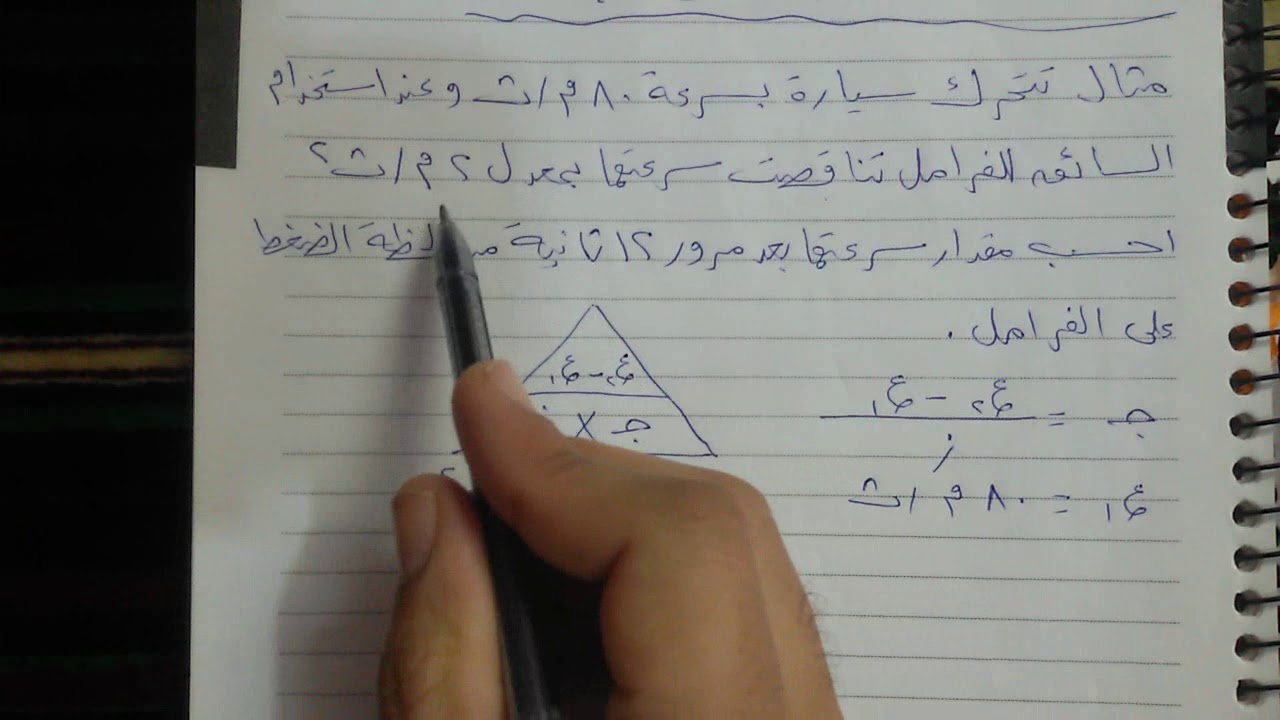 مثال تتحرك سيارة بسرعة ٨٠ م/ث وعند استخدام
السائق الفرامل تناقصت سرعتها بمعدل ٢ م/ث٢
احسب مقدار سرعتها بعد مرور ١٢ ثانية الضغط
على الفرامل .
ع٢ - ع١
جـ X
جـ = ع٢ - ع١
ز
ع١ = ٨٠ م/ث